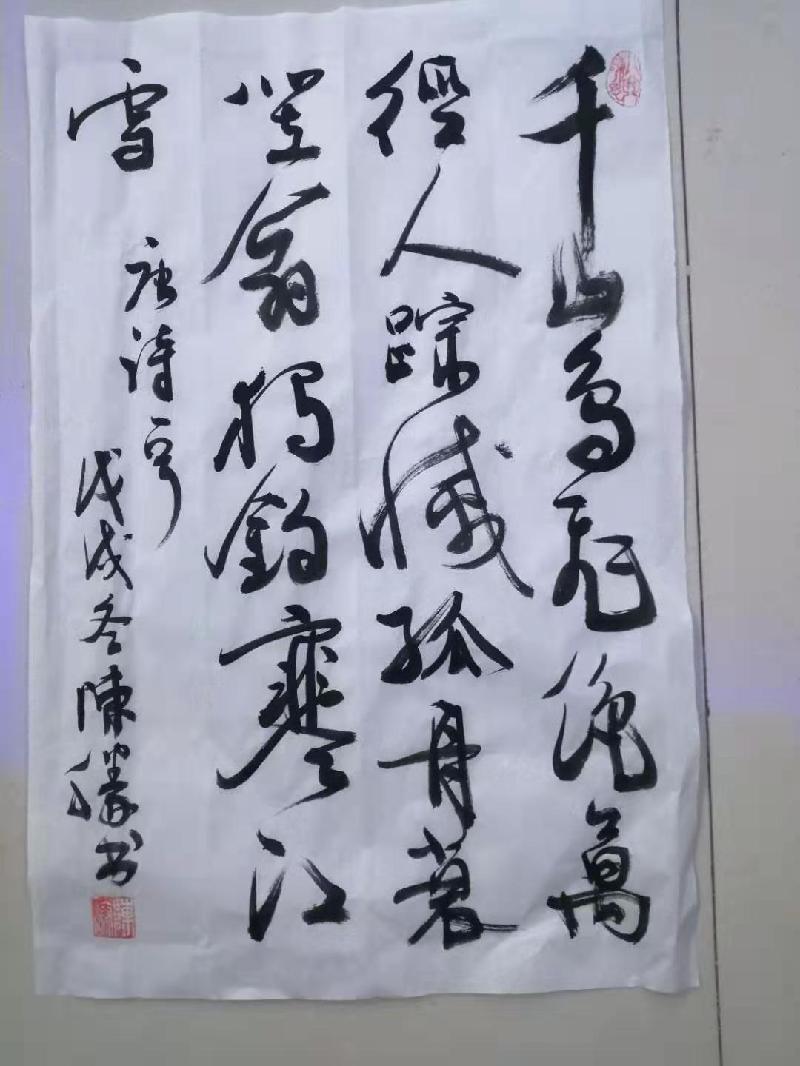 千山鳥飛絶萬
徑人踪滅孤舟蓑
笠翁獨釣寒江
雪
唐詩一首
戊戌冬陳勝书